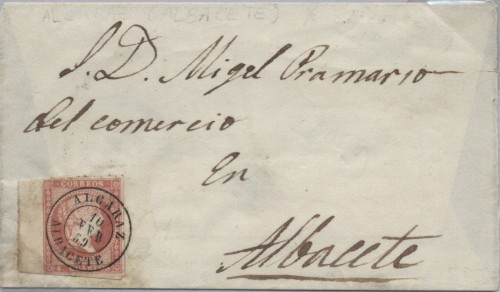 (ALBACETE)
S. D. Migel Pramario
del comercio
En
Albacete
CORREOS
ALCARAZ
10
FEB
59
ALBACETE